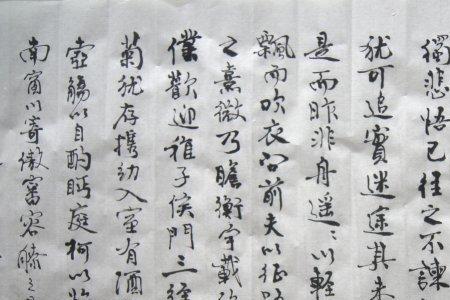 獨悲悟已往之不諫
猶可追實迷途其未
是而昨非舟遙〻以輕
飄而吹衣問前夫以征路
之熹微乃瞻衡宇載欣
僕歡迎稚子候門三徑
菊猶存攜幼入室有酒
壺觴以自酌眄庭柯以怡
南窗以寄傲審容膝之易